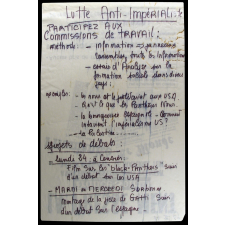 Lutte Anti-Impérialiste
PARTICIPEZ AUX
Commissions de TRAVAIL:
méthode: - information → journaux
rassembler toute les informations
- essai d'Analyse sur la
formation sociale dans divers
pays:
exemples: - le noir et le prolétariat aux USA
- qu'est ce que les Panthères Noires
- la bourgeoisie espagnole - comment
intervient l'impérialisme US?
- la Palestine
Sujets de débats:
- Lundi 24 à Censier:
Film sur les "black-Panthers" suivi
d'un débat sur les USA
- MARDI ou MERCREDI Sorbonne
montage de la pièce de GATTI suivi
d'un débat sur l'Espagne